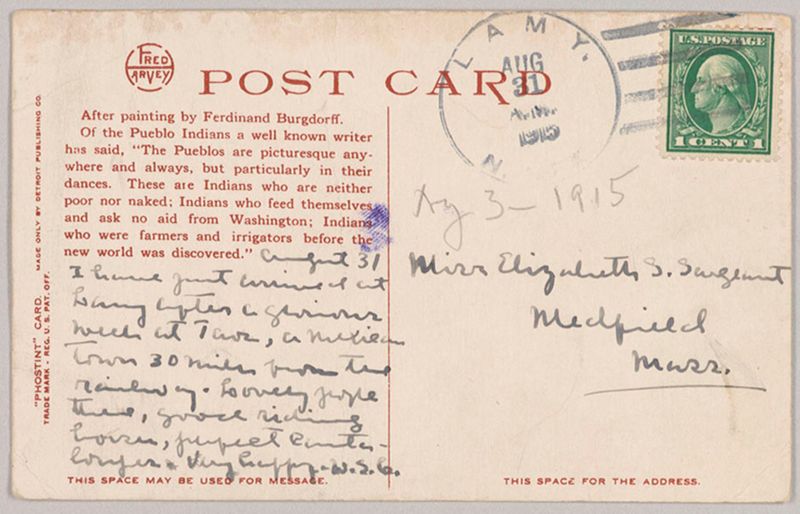 FRED
HARVEY
POST CARD
LAMY.
AUG
31
A.M.
1915
N.
U.S. POSTAGE
1 CENT 1
After painting by Ferdinand Burgdorff.
Of the Pueblo Indians a well known writer
has said, "The Pueblos are picturesque any-
where and always, but particularly in their
dances. These are Indians who are neither
poor nor naked; Indians who feed themselves
and ask no aid from Washington; Indians
who were farmers and irrigators before the
new world was discovered."
August 31
I have just arrived at
Lamy after a glorious
week at Taos, a Mexican
town 30 miles from the
railway. Lovely people
there, good riding
horses, perfect
Very happy. W.S.C.
Ag 3- 1915
Miss Elizabeth S. Sargeant
Medfield
Mass.
"PHOSTINT" CARD. MADE ONLY BY DETROIT PUBLISHING CO.
TRADE MARK - REG. U.S. PAT. OFF.
THIS SPACE MAY BE USED FOR MESSAGE.
THIS SPACE FOR THE ADDRESS.